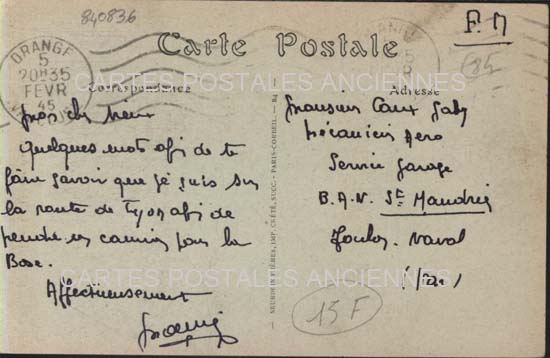 840836
F.M
ORANGE
5
20H35
FEVR
45
Carte Postale
84
CARTES POSTALES ANCIENNES
Correspondance
Adresse
quelques mots afin de te
faire savoir que je suis sur
la route de Lyon afin de
prendre un camion pour la
Base.
Affectueusement
Monsieur Caux Gaby
Mécanicien Aero
Service Garage
B.A.N. St Mandrié
Toulon. Naval
(Var)
NEURDEIN FRÈRES, IMP. CRÉTÉ, SUCC. - PARIS-CORBEIL. - 84
CARTES POSTALES ANCIENNES
15F